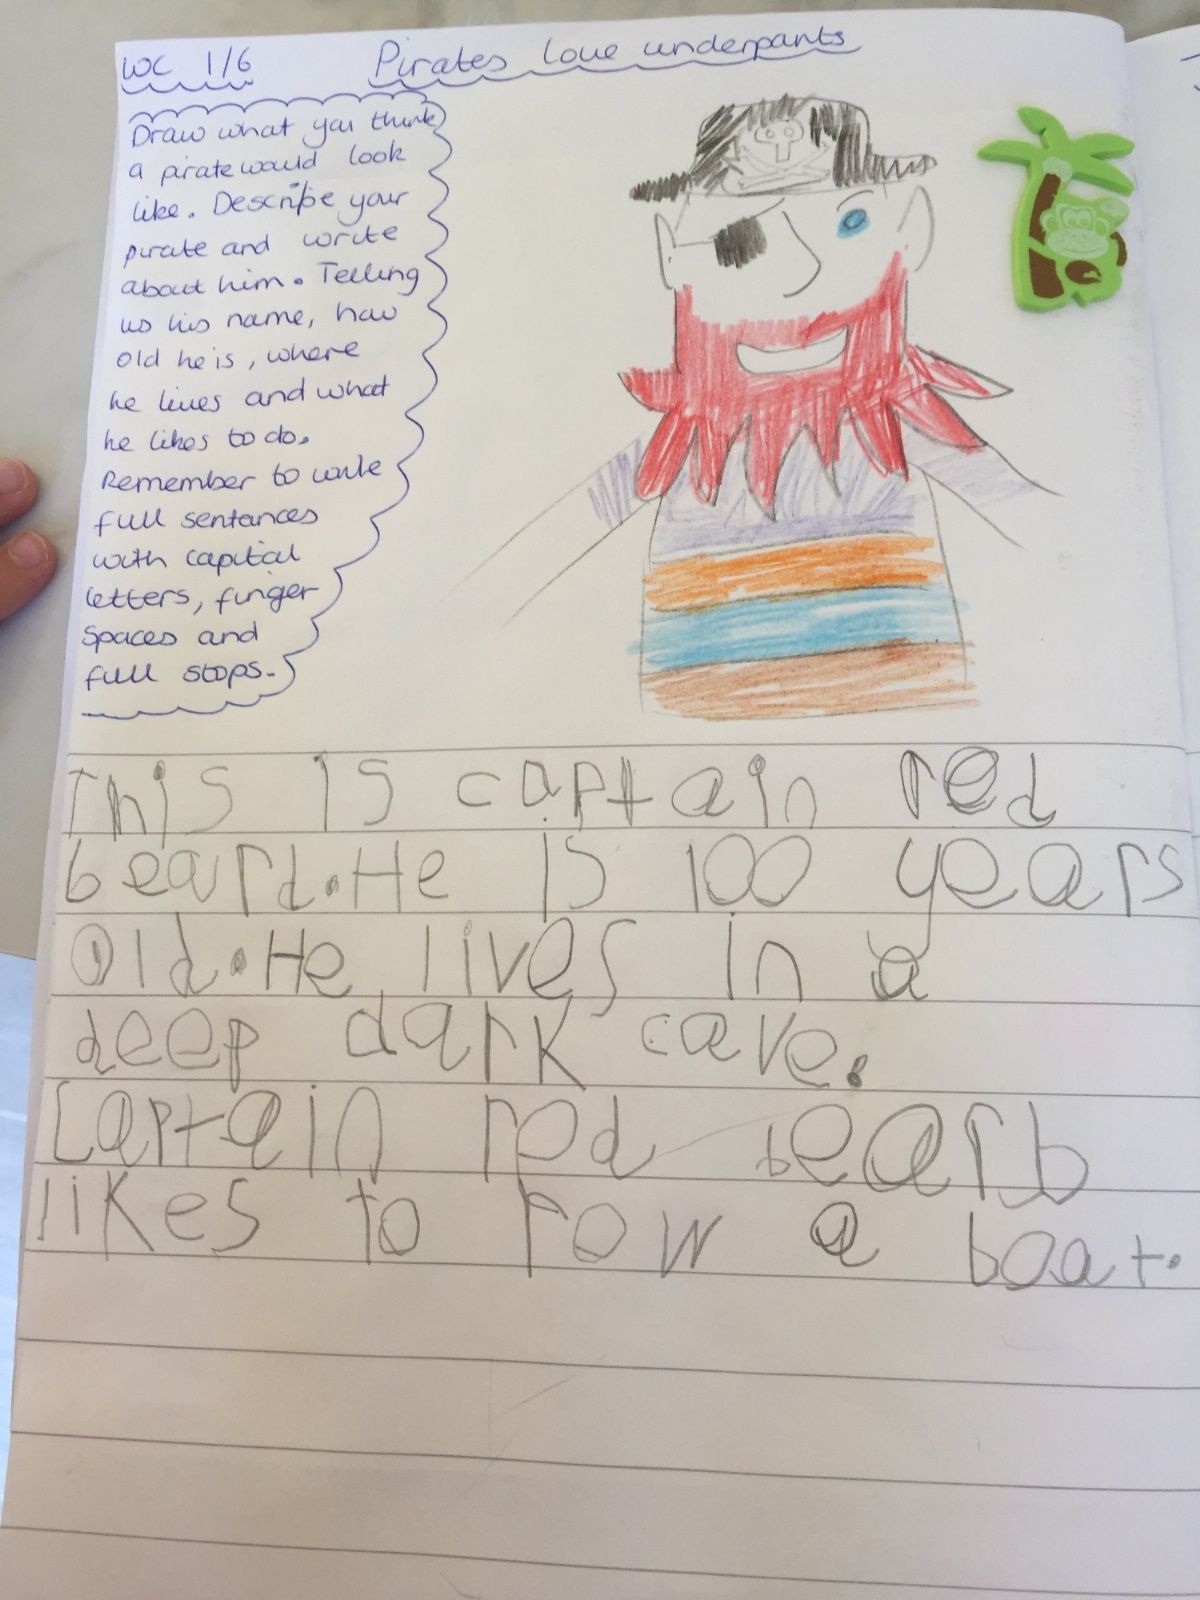 WC 1/6
Pirates love underpants
Draw what you think
a pirate would look
like. Describe your
pirate and write
about him. Telling
us his name, how
old he is, where
he lives and what
he likes to do.
Remember to write
full sentances
with capital
letters, finger
spaces and
full stops.
This is captain red
beard. He is 100 years
old. He lives in a
deep dark cave.
Captain red bearb
likes to row a boat.